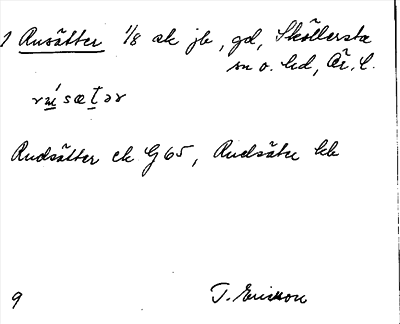 1 Rusätter 1/8 ek jb, gd, Sköllersta
sn o. hd, Ör. l.
Rudsätter ek G 65, Rudsäter kk
9 T. Ericsson